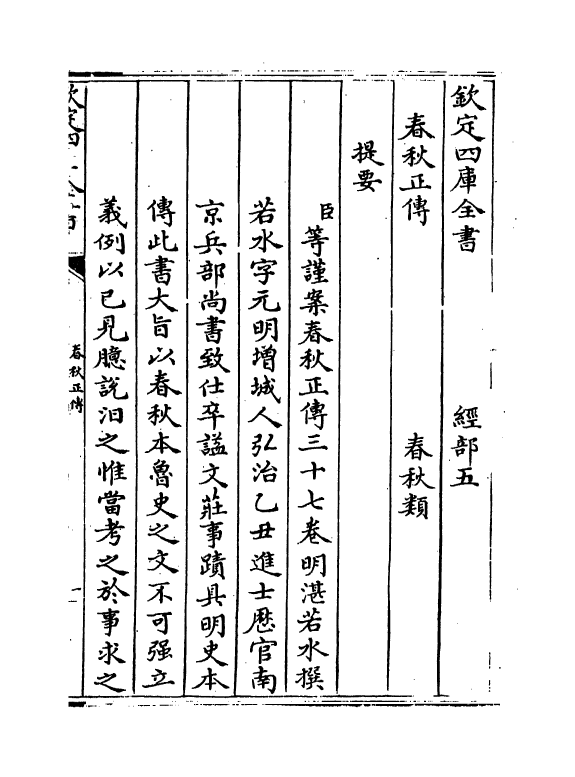 欽定四庫全書　經部五
春秋正傳　春秋類
提要
臣等謹案春秋正傳三十七卷明湛若水撰
若水字元明增城人弘治乙丑進士歴官南
京兵部尚書致仕卒諡文莊事蹟具明史本
傳此書大旨以春秋本魯史之文不可强立
義例以已見臆說汨之惟當考之於事求之
春秋正傳
一